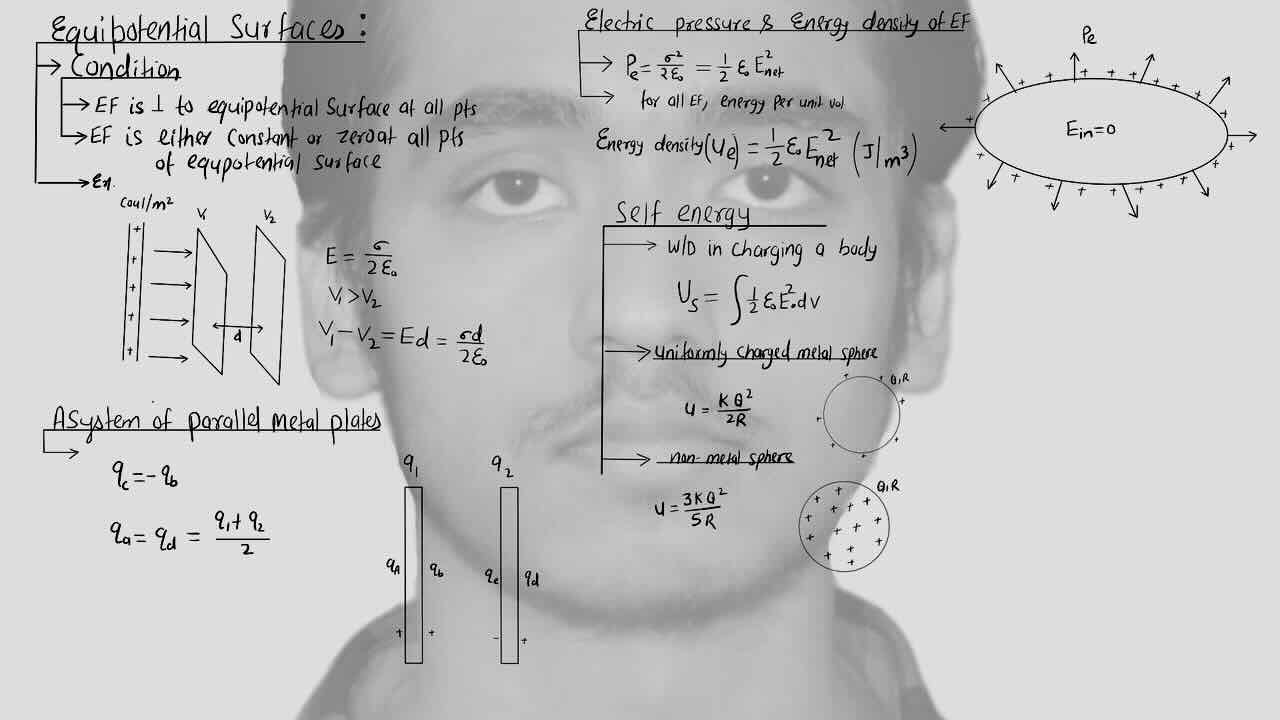 Equipotential Surfaces:
Condition
EF is ⊥ to equipotential Surface at all pts
EF is either constant or zero at all pts
of equpotential surface
Ex.
Coul/m²
V₁ V₂
d
E = σ/2ε₀
V₁>V₂
V₁-V₂=Ed = σd/2ε₀
A System of parallel Metal plates
q_c=-q_b
q_a= q_d = (q₁+q₂)/2
q₁ q₂
q_A q_b q_c q_d
+ + - +
Electric pressure & Energy density of EF
P_e= σ²/2ε₀ = 1/2 ε₀ E²_net
for all EF, energy per unit vol
Energy density(U_e) = 1/2 ε₀ E²_net (J/m³)
P_e
E_in=0
Self energy
W/D in charging a body
U_s = ∫1/2 ε₀E²₀dv
uniformly charged metal sphere
u = KQ²/2R
Q,R
non-metal sphere
u = 3KQ²/5R
Q,R